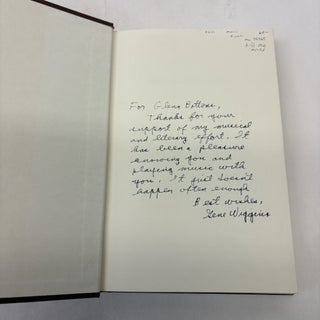 For Glenn
Thanks for your
support of my musical
and literary effort. It
has been a pleasure
knowing you and
playing music with
you. It just doesn't
happen often enough
Best wishes,
Gene Wiggins